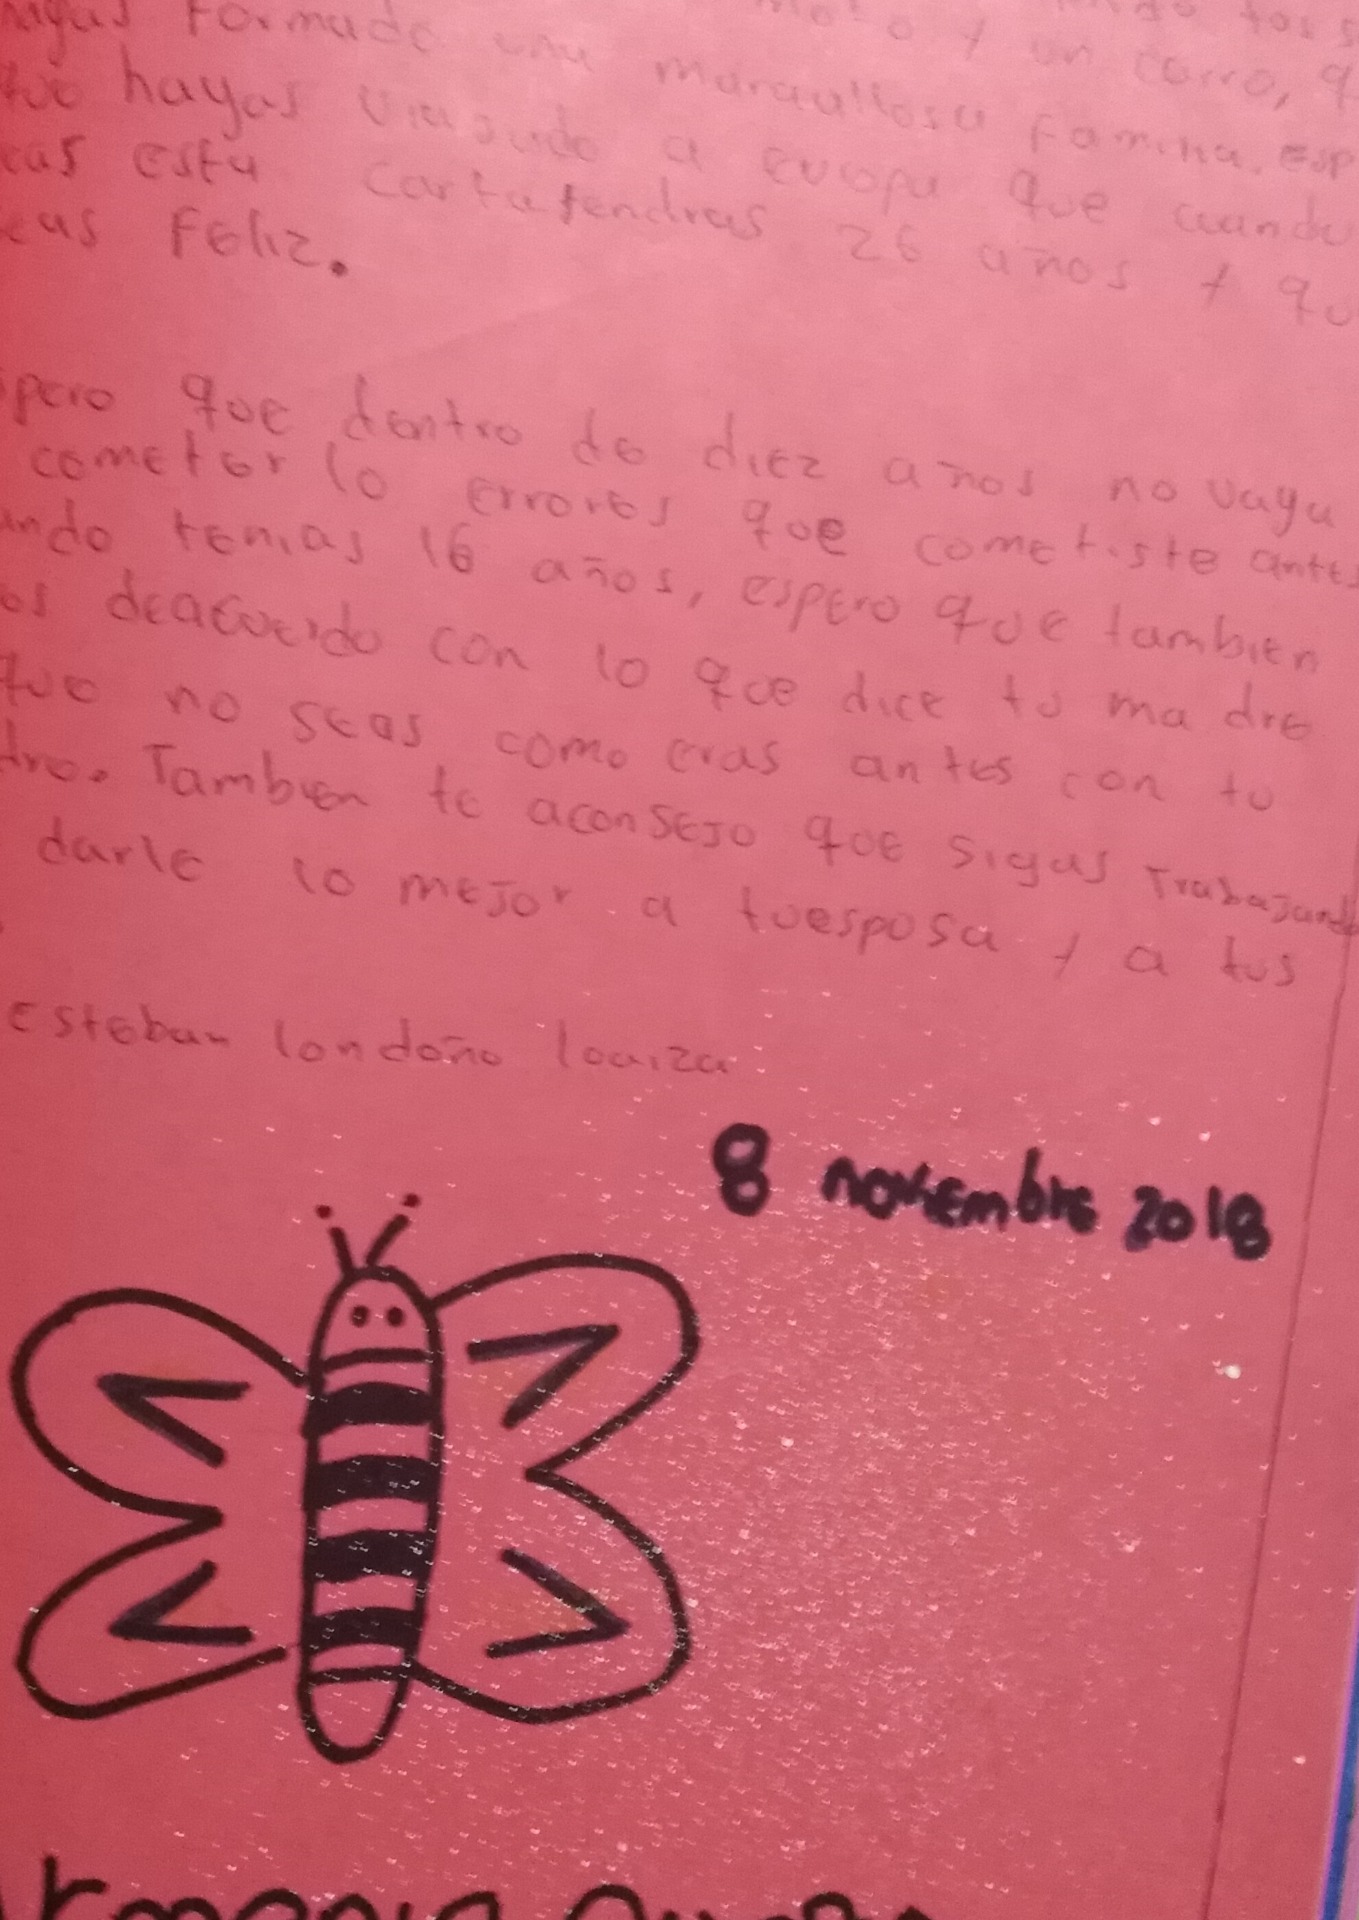 formado una maravillosa familia. esp
hayas viajado a europa que cuando
esta carta tendras 26 años y qu
eas Feliz.
spero que dentro de diez años no vaya
cometer lo errores que cometiste antes
ando tenias 16 años, espero que tambien
deacuerdo con lo que dice tu ma dre
no seas como eras antes con tu
dre. Tambien te aconsejo que sigas Trabajando
darle lo mejor a tuesposa y a tus
esteban londoño loaiza
8 novembre 2018